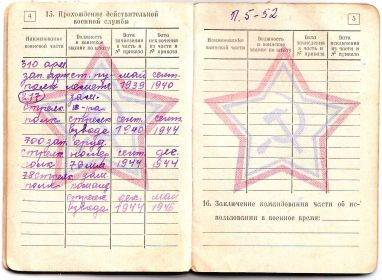 4
15. Прохождение действительной
военной службы
Наименование воинской части
Должность и воинское звание по штату
Дата зачисления в часть и № приказа
Дата исключения из части и № приказа
310 арт.
зап. май сент.
полк 1939 1940
217 зам.
стрелк.
полк стрелк сент. сент.
взвода 1940 1944
700 зап. оруд.
стрелк номер сент. дек.
полк 76мм 1944 1944
78 стрелк зам.
полк команд
стрелк дек. май
взвода 1944 1946
П. 5-52
5
Наименование воинской части
Должность и воинское звание по штату
Дата зачисления в часть и № приказа
Дата исключения из части и № приказа
16. Заключение командования части об ис-
пользовании в военное время: